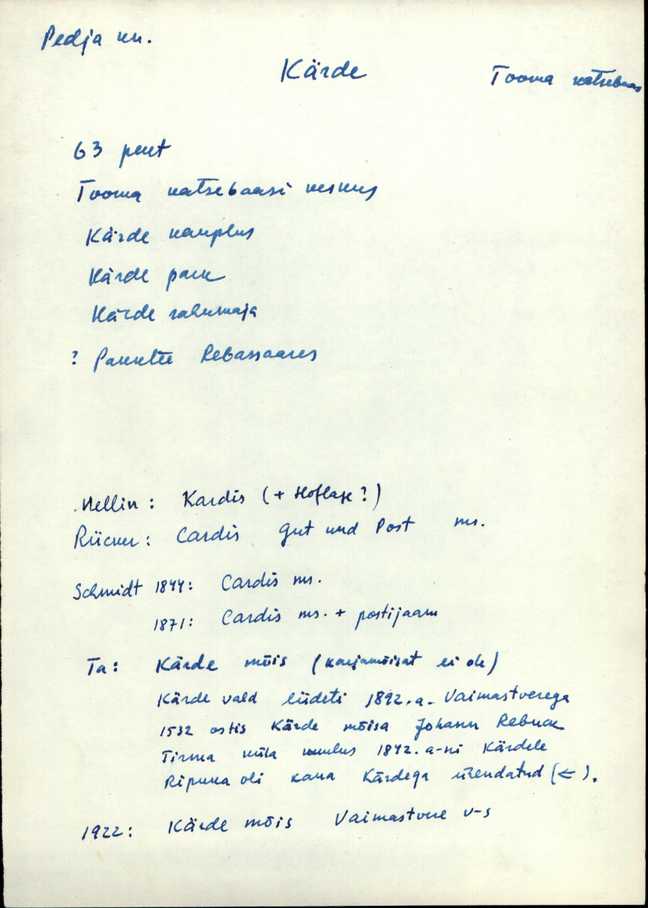 Pedja kn.
Kärde
Tooma katsebaas
63 peret
Tooma katsebaasi keskus
Kärde kauplus
Kärde park
Kärde rahumaja
? Rebassaares
Mellin : Kardis (+ Hoflage ?)
Rücker : Cardis Gut und Post ms.
Schmidt 1844 : Cardis ms.
1871 : Cardis ms. + postijaam
Ta : Kärde mõis (karjamõisat ei ole)
Kärde vald liideti 1892. a. Vaimastverega
1532 ostis Kärde mõisa Johann Rebock
Tirma küla kuulus 1842. a-ni Kärdele
Ripuka oli kaua Kärdega ühendatud (←).
1922 : Kärde mõis Vaimastvere v-s